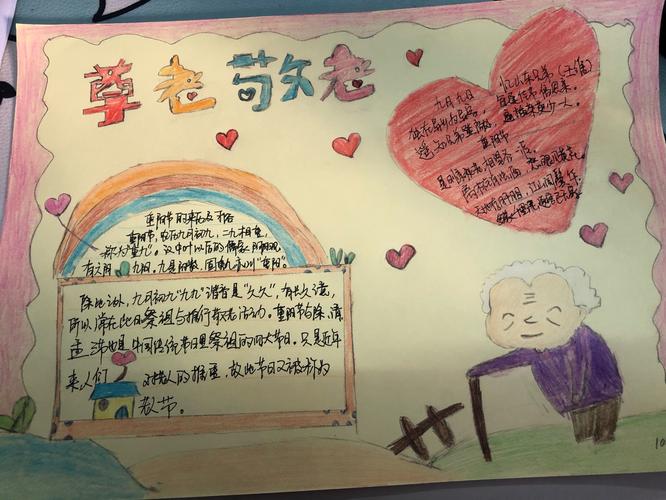 尊老敬老
忆山东兄弟（王维）
九月九日
独在异乡为异客，
每逢佳节倍思亲。
遥知兄弟登高处，
遍插茱萸少一人。
重阳节
重阳节的来历及习俗
重阳节，农历九月初九，二九相重，
称为"重九"。汉中叶以后的儒家阴阳观，
有六阴九阳。九是阳数，固重九亦叫"重阳"。
除此之外，九月初九"九九"谐音是"久久"，有长久之意，
所以常在此日祭祖与推行敬老活动。重阳节与除、清
、盂三节也是中国传统节日里祭祖的四大节日。只是近年
来人们对老人的推重，故此节日又被称为
老人节。
10